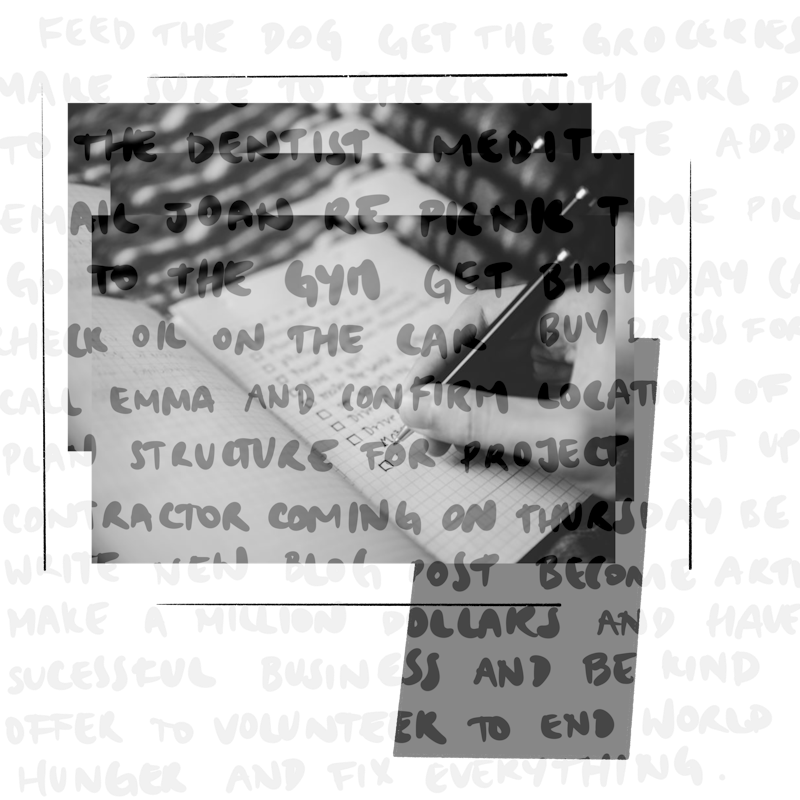 FEED THE DOG GET THE GROCERIES
MAKE SURE TO CHECK WITH CARL D
TO THE DENTIST MEDITATE ADD
EMAIL JOAN RE PICNIC TIME PIC
GO TO THE GYM GET BIRTHDAY CA
CHECK OIL ON THE CAR BUY DRESS FOR
CALL EMMA AND CONFIRM LOCATION OF
PLAN STRUCTURE FOR PROJECT SET UP
CONTRACTOR COMING ON THURSDAY BE
WRITE NEW BLOG POST BECOME ARTI
MAKE A MILLION DOLLARS AND HAVE
SUCESSFUL BUSINESS AND BE KIND
OFFER TO VOLUNTEER TO END WORLD
HUNGER AND FIX EVERYTHING.